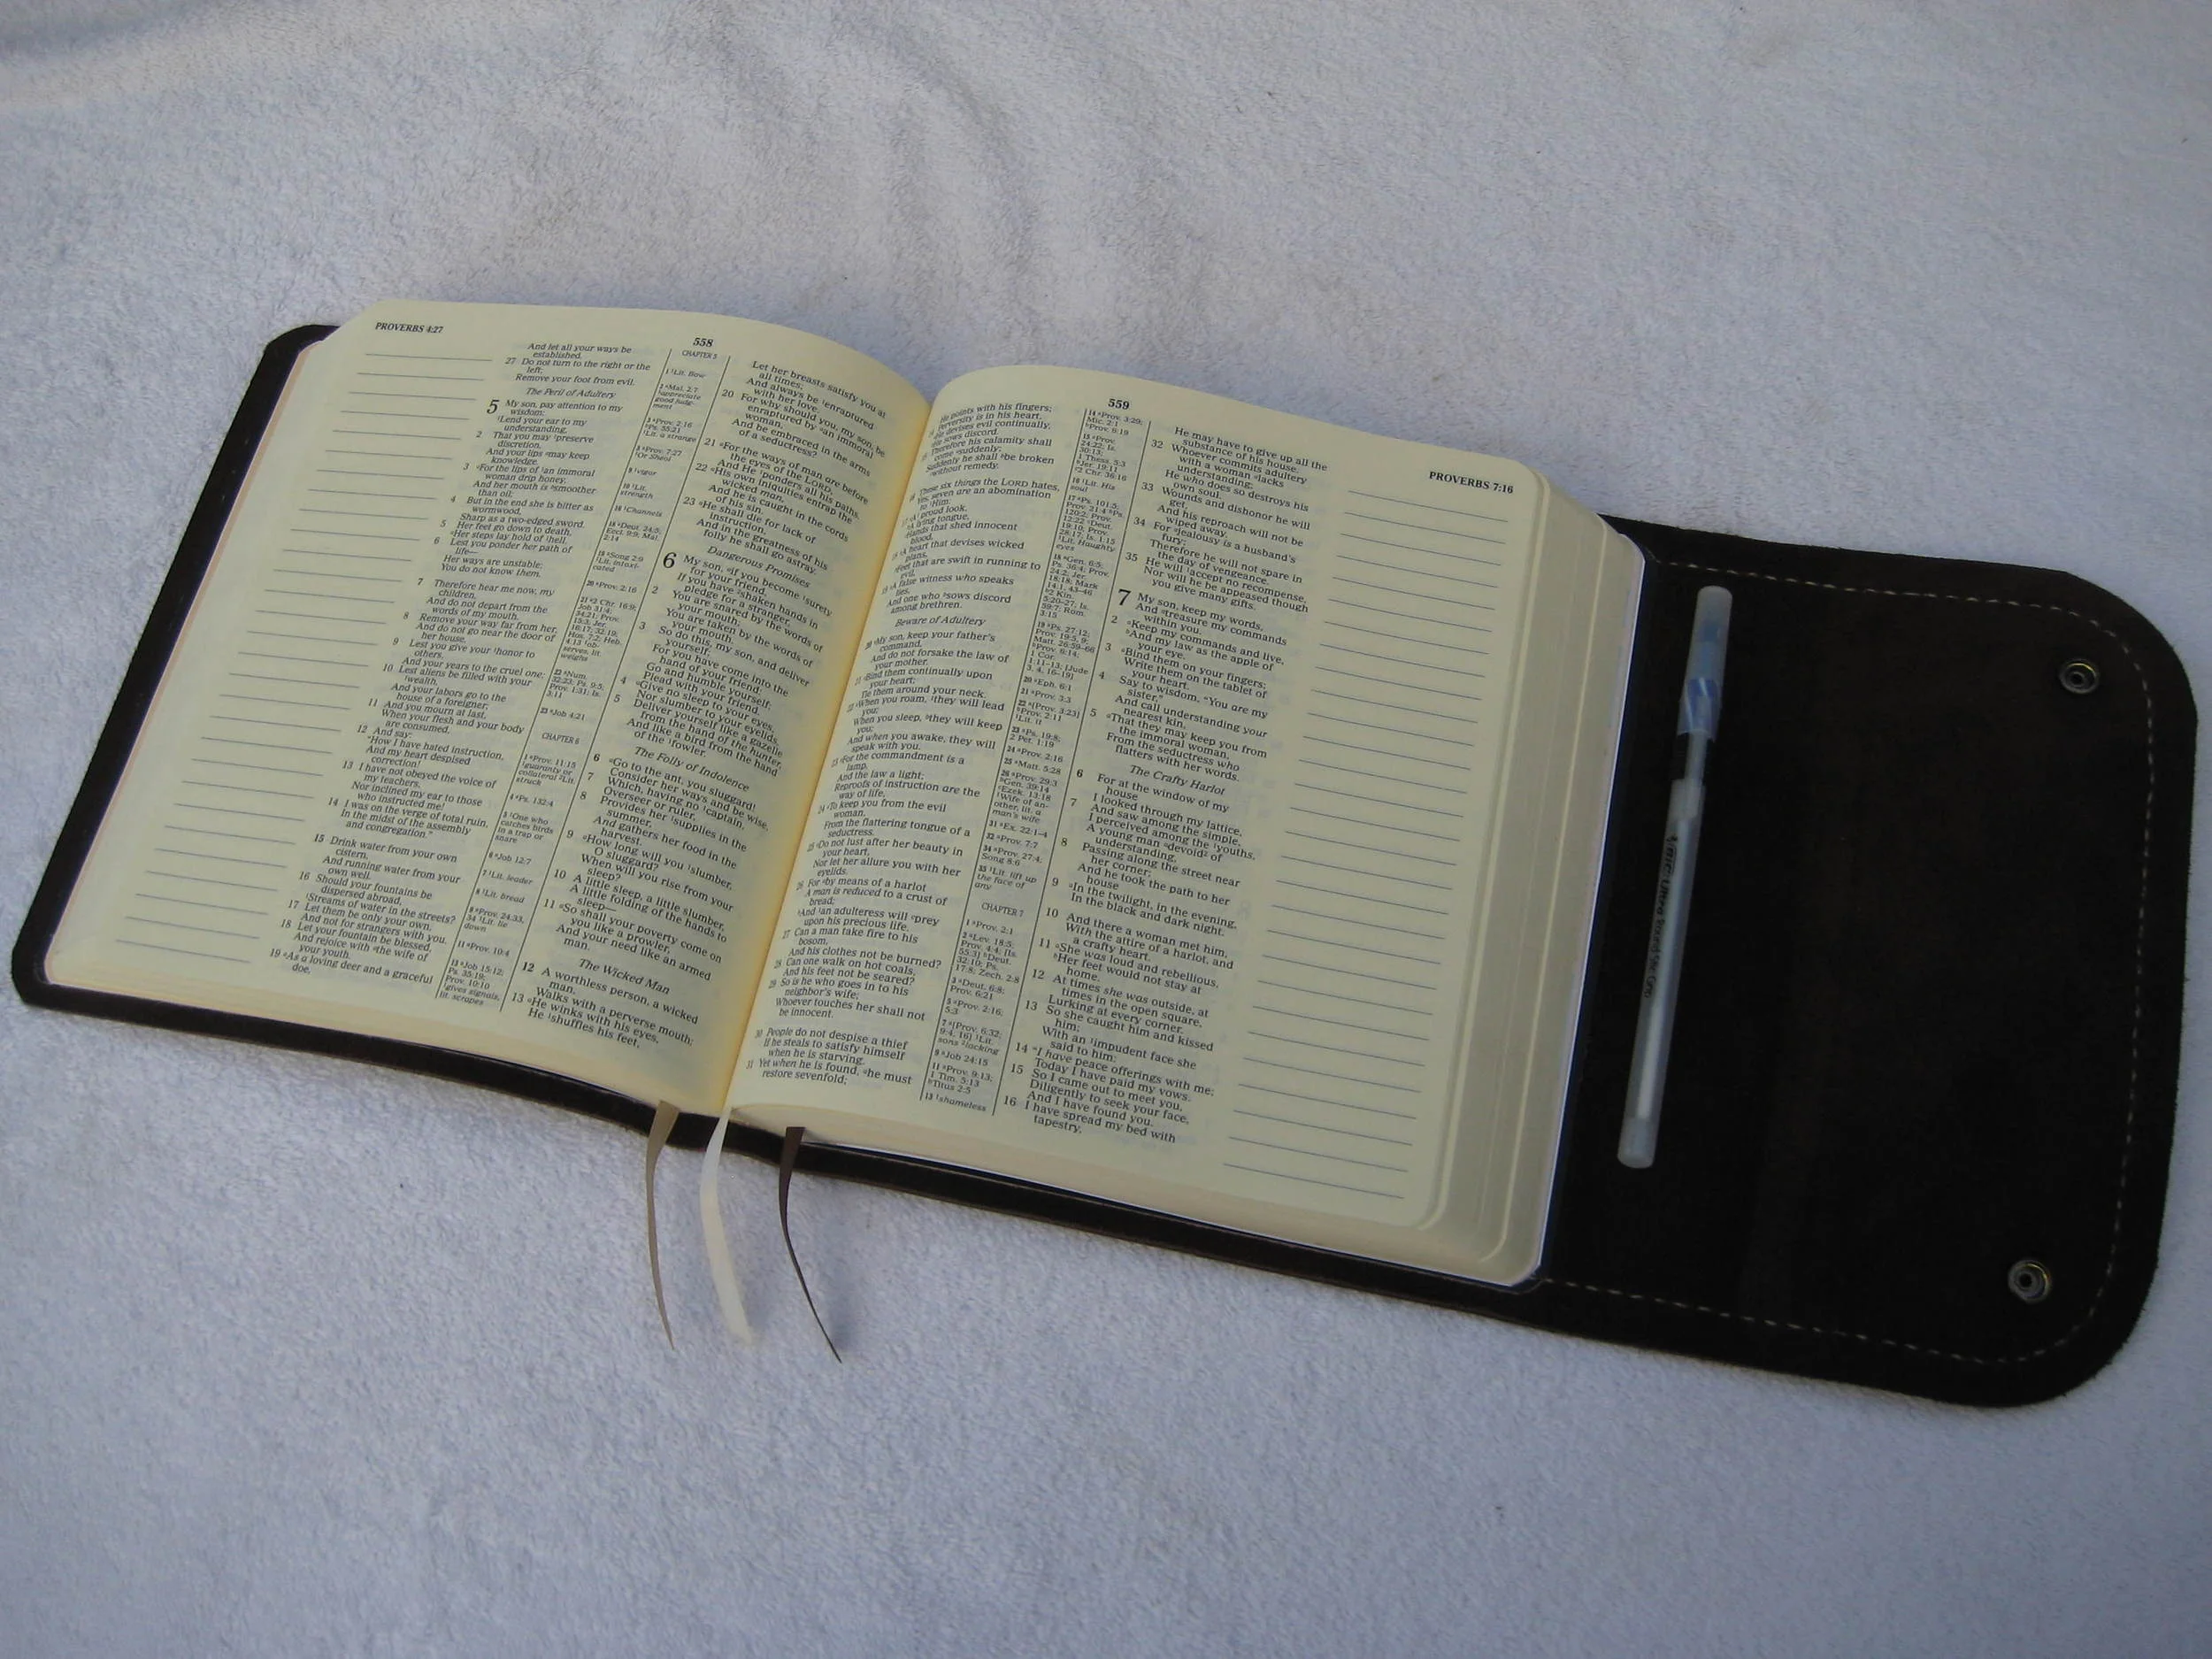 PROVERBS 4:27
558
And let all your ways be
established.
27 Do not turn to the right or the
left;
Remove your foot from evil.
The Peril of Adultery
5 My son, pay attention to my
wisdom;
Lend your ear to my
understanding,
2 That you may preserve
discretion,
And your lips may keep
knowledge.
3 For the lips of an immoral
woman drip honey,
And her mouth is smoother
than oil;
4 But in the end she is bitter as
wormwood,
Sharp as a two-edged sword.
5 Her feet go down to death,
Her steps lay hold of hell.
6 Lest you ponder her path of
life—
Her ways are unstable;
You do not know them.
7 Therefore hear me now, my
children,
And do not depart from the
words of my mouth.
8 Remove your way far from her,
And do not go near the door of
her house,
9 Lest you give your honor to
others,
And your years to the cruel one;
10 Lest aliens be filled with your
wealth,
And your labors go to the
house of a foreigner;
11 And you mourn at last,
When your flesh and your body
are consumed,
12 And say:
"How I have hated instruction,
And my heart despised
correction!
13 I have not obeyed the voice of
my teachers,
Nor inclined my ear to those
who instructed me!
14 I was on the verge of total ruin,
In the midst of the assembly
and congregation."
15 Drink water from your own
cistern,
And running water from your
own well.
16 Should your fountains be
dispersed abroad,
Streams of water in the streets?
17 Let them be only your own,
And not for strangers with you.
18 Let your fountain be blessed,
And rejoice with the wife of
your youth.
19 As a loving deer and a graceful
doe,
CHAPTER 5
1 Lit. Bow
2 Mal. 2:7
appreciate
good judg-
ment
3 Prov. 2:16
Ps. 55:21
Lit. a strange
5 Prov. 7:27
Or Sheol
9 vigor
10 Lit.
strength
16 Channels
18 Deut. 24:5;
Eccl. 9:9; Mal.
2:14
19 Song 2:9
Lit. intoxi-
cated
20 Prov. 2:16
21 2 Chr. 16:9;
Job 31:4;
34:21; Prov.
15:3; Jer.
16:17; 32:19;
Hos. 7:2; Heb.
4:13 ob-
serves, lit.
weighs
22 Num.
32:23; Ps. 9:5;
Prov. 1:31; Is.
3:11
23 Job 4:21
CHAPTER 6
1 Prov. 11:15
guaranty or
collateral Lit.
struck
4 Ps. 132:4
5 One who
catches birds
in a trap or
snare
6 Job 12:7
7 Lit. leader
8 Lit. bread
9 Prov. 24:33,
34 Lit. lie
down
11 Prov. 10:4
13 Job 15:12;
Ps. 35:19;
Prov. 10:10
gives signals,
lit. scrapes
Let her breasts satisfy you at
all times;
And always be enraptured
with her love.
20 For why should you, my son, be
enraptured by an immoral
woman,
And be embraced in the arms
of a seductress?
21 For the ways of man are before
the eyes of the LORD,
And He ponders all his paths.
22 His own iniquities entrap the
wicked man,
And he is caught in the cords
of his sin.
23 He shall die for lack of
instruction,
And in the greatness of his
folly he shall go astray.
Dangerous Promises
6 My son, if you become surety
for your friend,
If you have shaken hands in
pledge for a stranger,
2 You are snared by the words of
your mouth;
You are taken by the words of
your mouth.
3 So do this, my son, and deliver
yourself;
For you have come into the
hand of your friend:
Go and humble yourself;
Plead with your friend.
4 Give no sleep to your eyes,
Nor slumber to your eyelids.
5 Deliver yourself like a gazelle
from the hand of the hunter,
And like a bird from the hand
of the fowler.
The Folly of Indolence
6 Go to the ant, you sluggard!
Consider her ways and be wise,
7 Which, having no captain,
Overseer or ruler,
8 Provides her supplies in the
summer,
And gathers her food in the
harvest.
9 How long will you slumber,
O sluggard?
When will you rise from your
sleep?
10 A little sleep, a little slumber,
A little folding of the hands to
sleep—
11 So shall your poverty come on
you like a prowler,
And your need like an armed
man.
The Wicked Man
12 A worthless person, a wicked
man,
Walks with a perverse mouth;
13 He winks with his eyes,
He shuffles his feet,
559
PROVERBS 7:16
He points with his fingers;
Perversity is in his heart,
He devises evil continually,
He sows discord.
Therefore his calamity shall
come suddenly;
Suddenly he shall be broken
without remedy.
These six things the LORD hates,
Yes, seven are an abomination
to Him:
A proud look,
A lying tongue,
Hands that shed innocent
blood,
A heart that devises wicked
plans,
Feet that are swift in running to
evil,
A false witness who speaks
lies,
And one who sows discord
among brethren.
Beware of Adultery
20 My son, keep your father's
command,
And do not forsake the law of
your mother.
21 Bind them continually upon
your heart;
Tie them around your neck.
22 When you roam, they will lead
you;
When you sleep, they will keep
you;
And when you awake, they will
speak with you.
23 For the commandment is a
lamp,
And the law a light;
Reproofs of instruction are the
way of life,
24 To keep you from the evil
woman,
From the flattering tongue of a
seductress.
25 Do not lust after her beauty in
your heart,
Nor let her allure you with her
eyelids.
26 For by means of a harlot
A man is reduced to a crust of
bread;
And an adulteress will prey
upon his precious life.
27 Can a man take fire to his
bosom,
And his clothes not be burned?
28 Can one walk on hot coals,
And his feet not be seared?
29 So is he who goes in to his
neighbor's wife;
Whoever touches her shall not
be innocent.
30 People do not despise a thief
If he steals to satisfy himself
when he is starving.
31 Yet when he is found, he must
restore sevenfold;
14 Prov. 3:29;
Mic. 2:1
Prov. 6:19
15 Prov.
24:22; Is.
30:13;
1 Thess. 5:3
Jer. 19:11
2 Chr. 36:16
16 Lit. His
soul
17 Ps. 101:5;
Prov. 21:4 Ps.
120:2; Prov.
12:22 Deut.
19:10; Prov.
28:17; Is. 1:15
Lit. Haughty
eyes
18 Gen. 6:5;
Ps. 36:4; Prov.
24:2; Jer.
18:18; Mark
14:1, 43–46
2 Kin.
5:20–27; Is.
59:7; Rom.
3:15
19 Ps. 27:12;
Prov. 19:5, 9;
Matt. 26:59–66
Prov. 6:14;
1 Cor.
1:11–13; [Jude
3, 4, 16–19]
20 Eph. 6:1
21 Prov. 3:3
22 [Prov. 3:23]
Prov. 2:11
Lit. it
23 Ps. 19:8;
2 Pet. 1:19
24 Prov. 2:16
25 Matt. 5:28
26 Prov. 29:3
Gen. 39:14
Ezek. 13:18
Wife of an-
other, lit. a
man's wife
31 Ex. 22:1–4
32 Prov. 7:7
34 Prov. 27:4;
Song 8:6
35 Lit. lift up
the face of
any
CHAPTER 7
1 Prov. 2:1
2 Lev. 18:5;
Prov. 4:4; [Is.
55:3] Deut.
32:10; Ps.
17:8; Zech. 2:8
3 Deut. 6:8;
Prov. 6:21
5 Prov. 2:16;
5:3
7 [Prov. 6:32;
9:4, 16] Lit.
sons lacking
9 Job 24:15
11 Prov. 9:13;
1 Tim. 5:13
Titus 2:5
13 shameless
He may have to give up all the
substance of his house.
32 Whoever commits adultery
with a woman lacks
understanding;
He who does so destroys his
own soul.
33 Wounds and dishonor he will
get,
And his reproach will not be
wiped away.
34 For jealousy is a husband's
fury;
Therefore he will not spare in
the day of vengeance.
35 He will accept no recompense,
Nor will he be appeased though
you give many gifts.
7 My son, keep my words,
And treasure my commands
within you.
2 Keep my commands and live,
And my law as the apple of
your eye.
3 Bind them on your fingers;
Write them on the tablet of
your heart.
4 Say to wisdom, "You are my
sister,"
And call understanding your
nearest kin,
5 That they may keep you from
the immoral woman,
From the seductress who
flatters with her words.
The Crafty Harlot
6 For at the window of my
house
I looked through my lattice,
7 And saw among the simple,
I perceived among the youths,
A young man devoid of
understanding,
8 Passing along the street near
her corner;
And he took the path to her
house
9 In the twilight, in the evening,
In the black and dark night.
10 And there a woman met him,
With the attire of a harlot, and
a crafty heart.
11 She was loud and rebellious,
Her feet would not stay at
home.
12 At times she was outside, at
times in the open square,
Lurking at every corner.
13 So she caught him and kissed
him;
With an impudent face she
said to him:
14 "I have peace offerings with me;
Today I have paid my vows.
15 So I came out to meet you,
Diligently to seek your face,
And I have found you.
16 I have spread my bed with
tapestry,
BIC Ultra Round Stic Grip